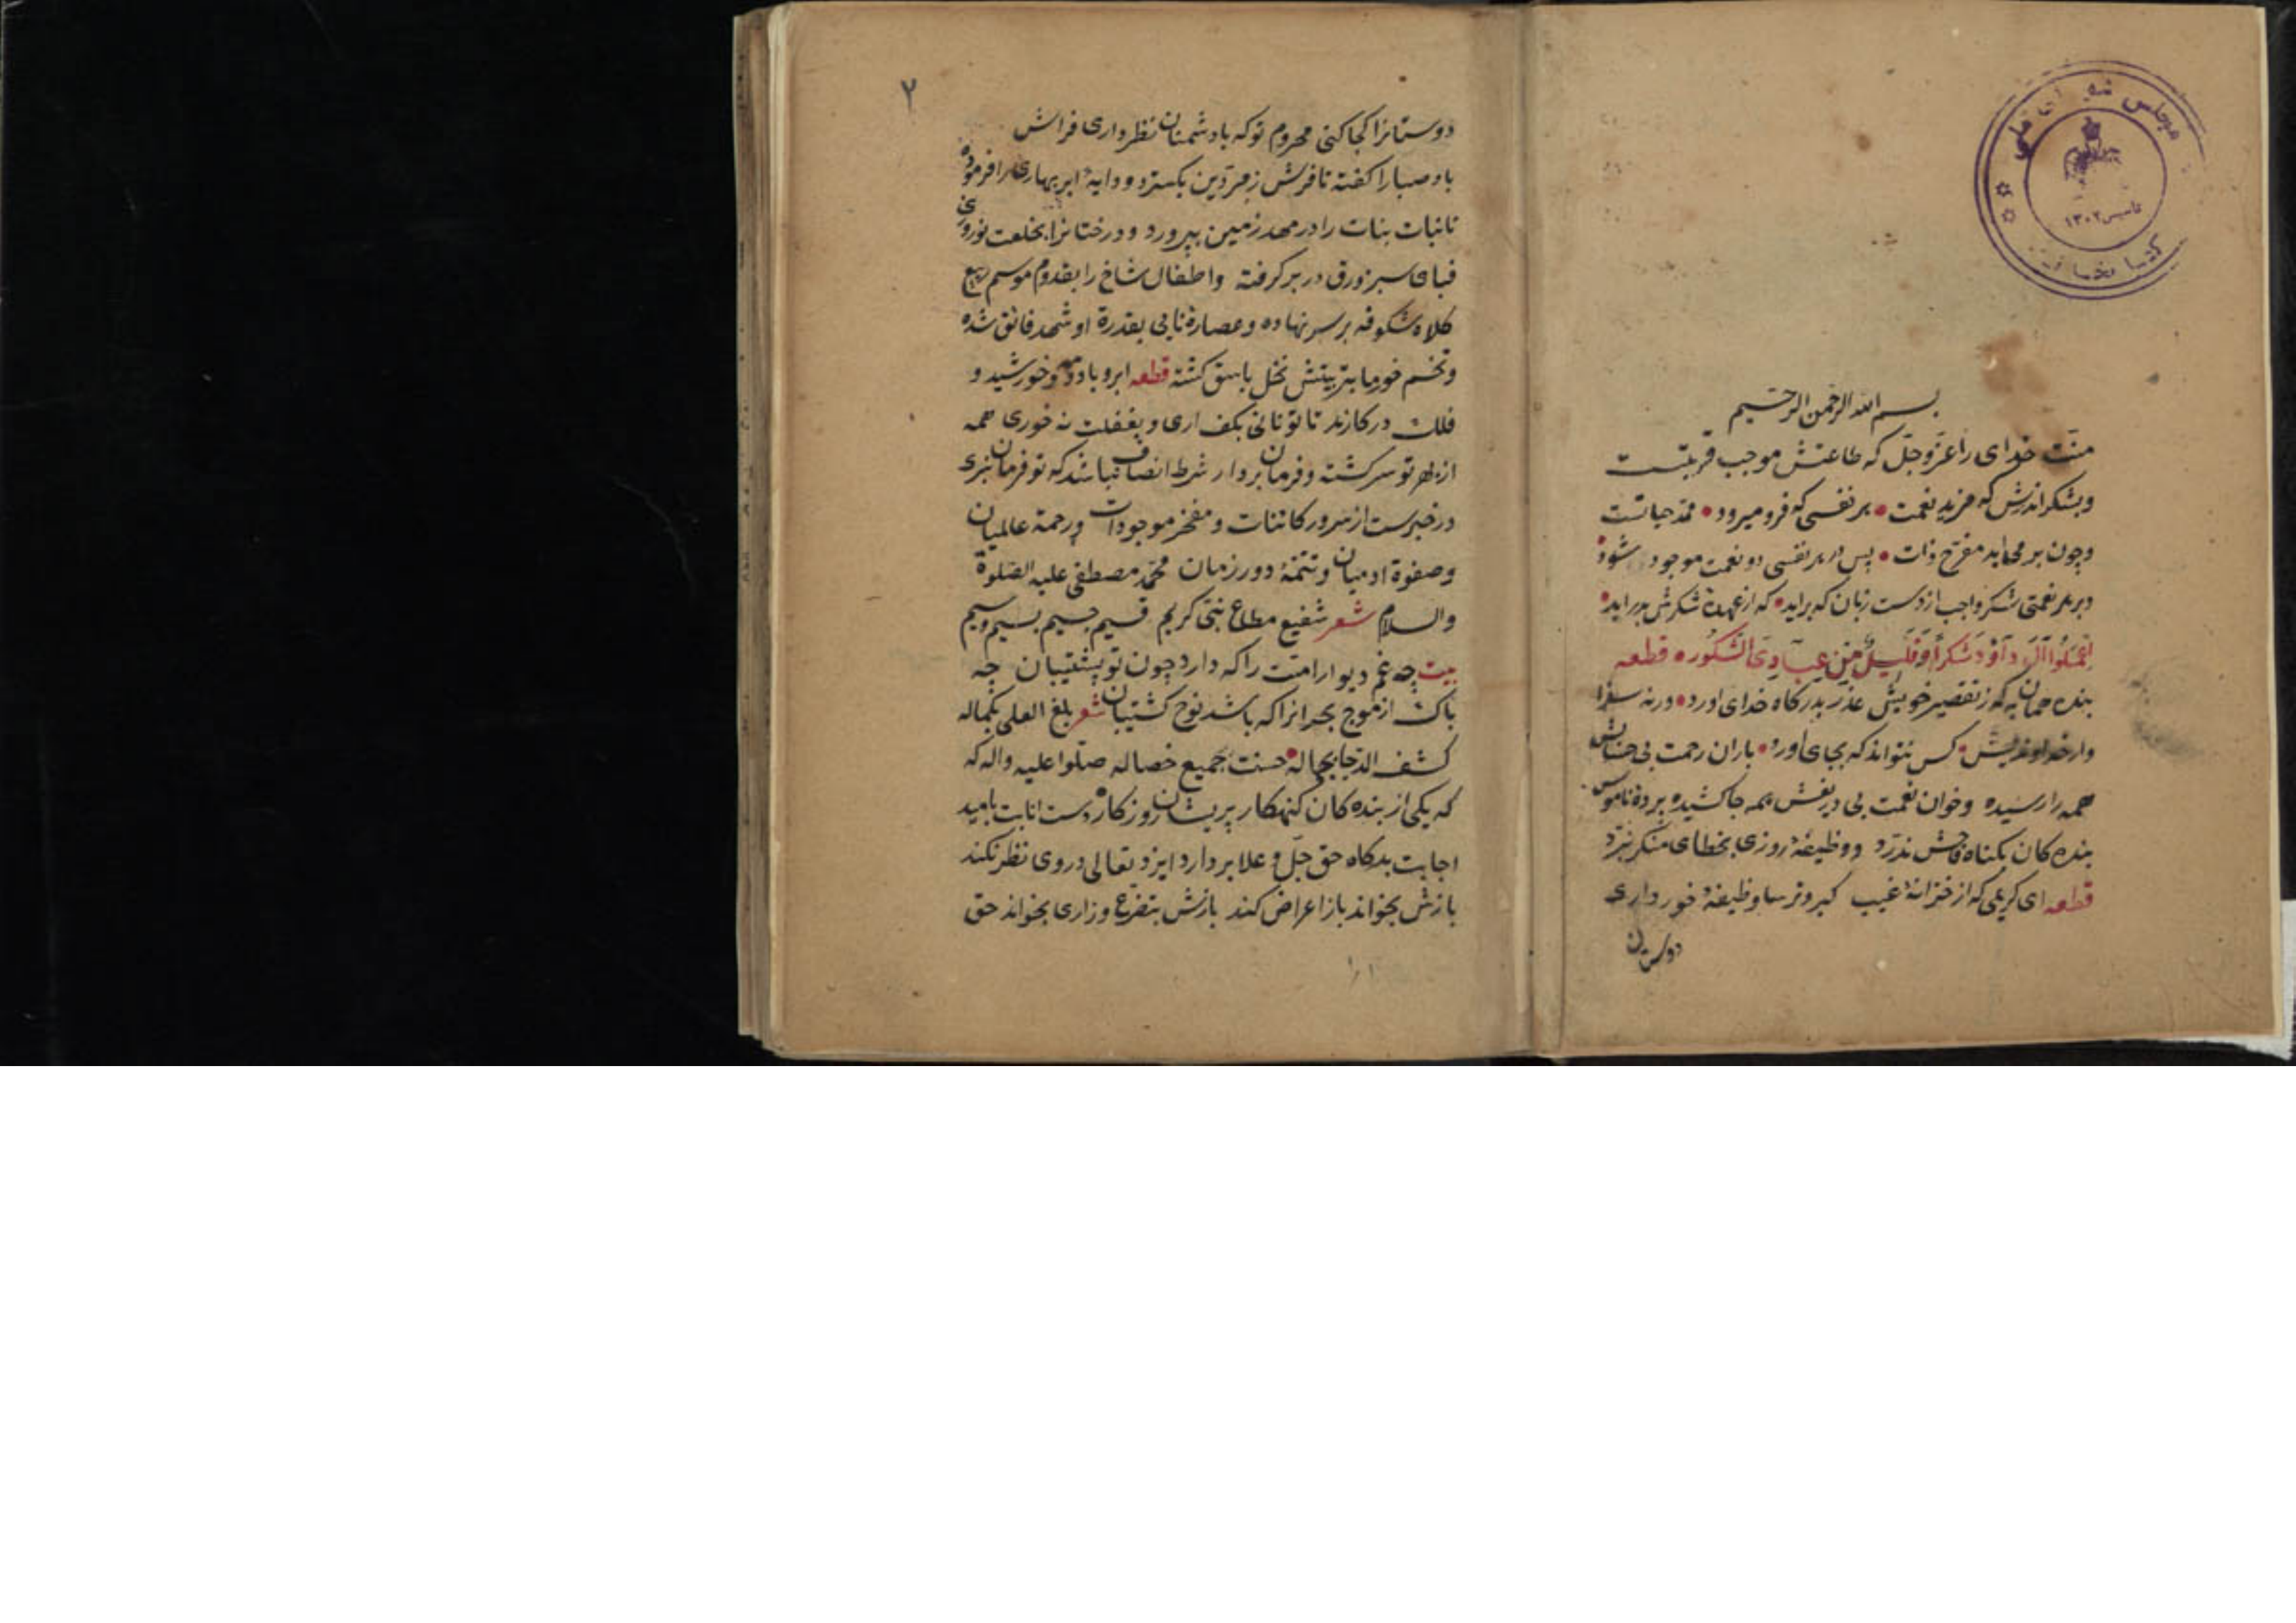 مجلس شورای ملی
تاسیس ۱۳۰۲
کتابخانه
بسم الله الرحمن الرحیم
منّت خدای را عزّ و جلّ که طاعتش موجب قربتست
و بشکر اندرش که مزید نعمت • هر نفسی که فرو میرود • ممّد حیاتست
و چون بر می اید مفرّح ذات • پس در هر نفسی دو نعمت موجود شود
و بر هر نعمتی شکر واجب از دست زبان که براید • که از عهدۀ شکرش بدر اید •
اِعْمَلُوا آلَ دَاوُدَ شُکْراً وَ قَلِیلٌ مِنْ عِبَادِیَ الشَّکُور ه قطعه
بنده همان به که ز تقصیر خویش عذر بدرکاه خدای اورد • ورنه سزا
وار خداوندیش • کس نتواند که بجای اورد • باران رحمت بی حسابش
همه را رسیده و خوان نعمت بی دریغش همه جا کشیده پردۀ ناموس
بنده کان بکناه فاحش ندرّد و وظیفۀ روزی بخطای منکر نبرّد
قطعه ای کریمی که از خزانۀ غیب کبر و ترسا وظیفۀ خور داری
دوستان
۲
دوستانرا کجا کنی محروم توکه با دشمنان نظر داری فراش
باد صبا را کفته تا فرش زمرّدین بکسترد و دایۀ ابر بهاری را فرموده
تا نبات بنات را در مهد زمین بپرورد و درختانرا بخلعت نوروزی
قبای سبز ورق در بر کرفته و اطفال شاخ را بقدوم موسم ربیع
کلاه شکوفه بر سر نهاده و عصارۀ نایی بقدرة او شهد فائق شده
و تخم خورما بتربیتش نخل باسق کشته قطعه ابر و باد و مه و خورشید و
فلک در کارند تا تو نانی بکف اری و بغفلت نه خوری همه
از بهر تو سرکشته و فرمان بردار شرط انصاف نباشد که تو فرمان نبری
در خبرست از سرور کائنات و مفخر موجودات و رحمة عالمیان
و صفوة ادمیان و تتمۀ دور زمان محمّد مصطفی علیه الصّلوة
والسلام شعر شفیع مطاع نبّی کریم قسیم جسیم بسیم وسیم
بیت چه غم دیوار امّت را که دارد چون تو پشتیبان چه
باک از موج بحر انرا که باشد نوح کشتیبان شعر بلغ العلی بکماله
کشف الدّجا بجماله • حسنت جمیع خصاله صلّوا علیه و اله که
که یکی از بنده کان کنهکار پریشان روزکار دست انابت بامید
اجابت بدکاه حق جلّ و علا بردارد ایزد تعالی در وی نظر نکند
بازش بخواند باز اعراض کند بازش بتضرع و زاری بخواند حق